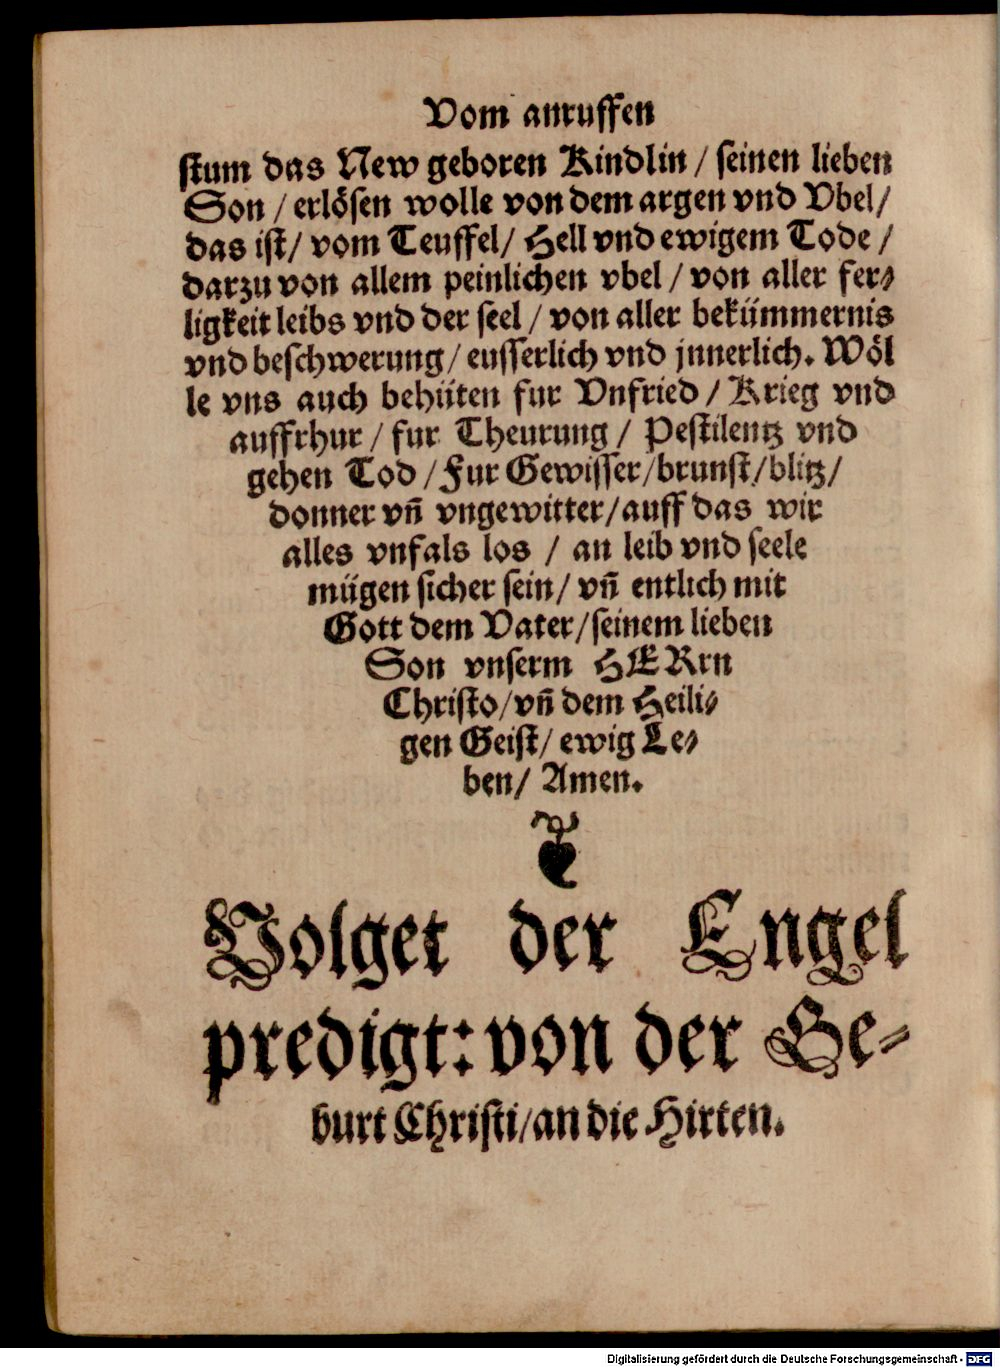 Vom anruffen
stum das New geboren Kindlin / seinen lieben
Son / erlösen wolle von dem argen vnd Vbel /
das ist / vom Teuffel / Hell vnd ewigem Tode /
darzu von allem peinlichen vbel / von aller fer⸗
ligkeit leibs vnd der seel / von aller bekümmernis
vnd beschwerung / eusserlich vnd jnnerlich. Wöl
le vns auch behüten fur Vnfried / Krieg vnd
auffrhur / fur Theurung / Pestilentz vnd
gehen Tod / Fur Gewisser / brunst / blitz /
donner vñ vngewitter / auff das wir
alles vnfals los / an leib vnd seele
mügen sicher sein / vñ entlich mit
Gott dem Vater / seinem lieben
Son vnserm HERrn
Christo / vñ dem Heili⸗
gen Geist / ewig Le⸗
ben / Amen.
Volget der Engel
predigt: von der Ge⸗
burt Christi / an die Hirten.
Digitalisierung gefördert durch die Deutsche Forschungsgemeinschaft - DFG